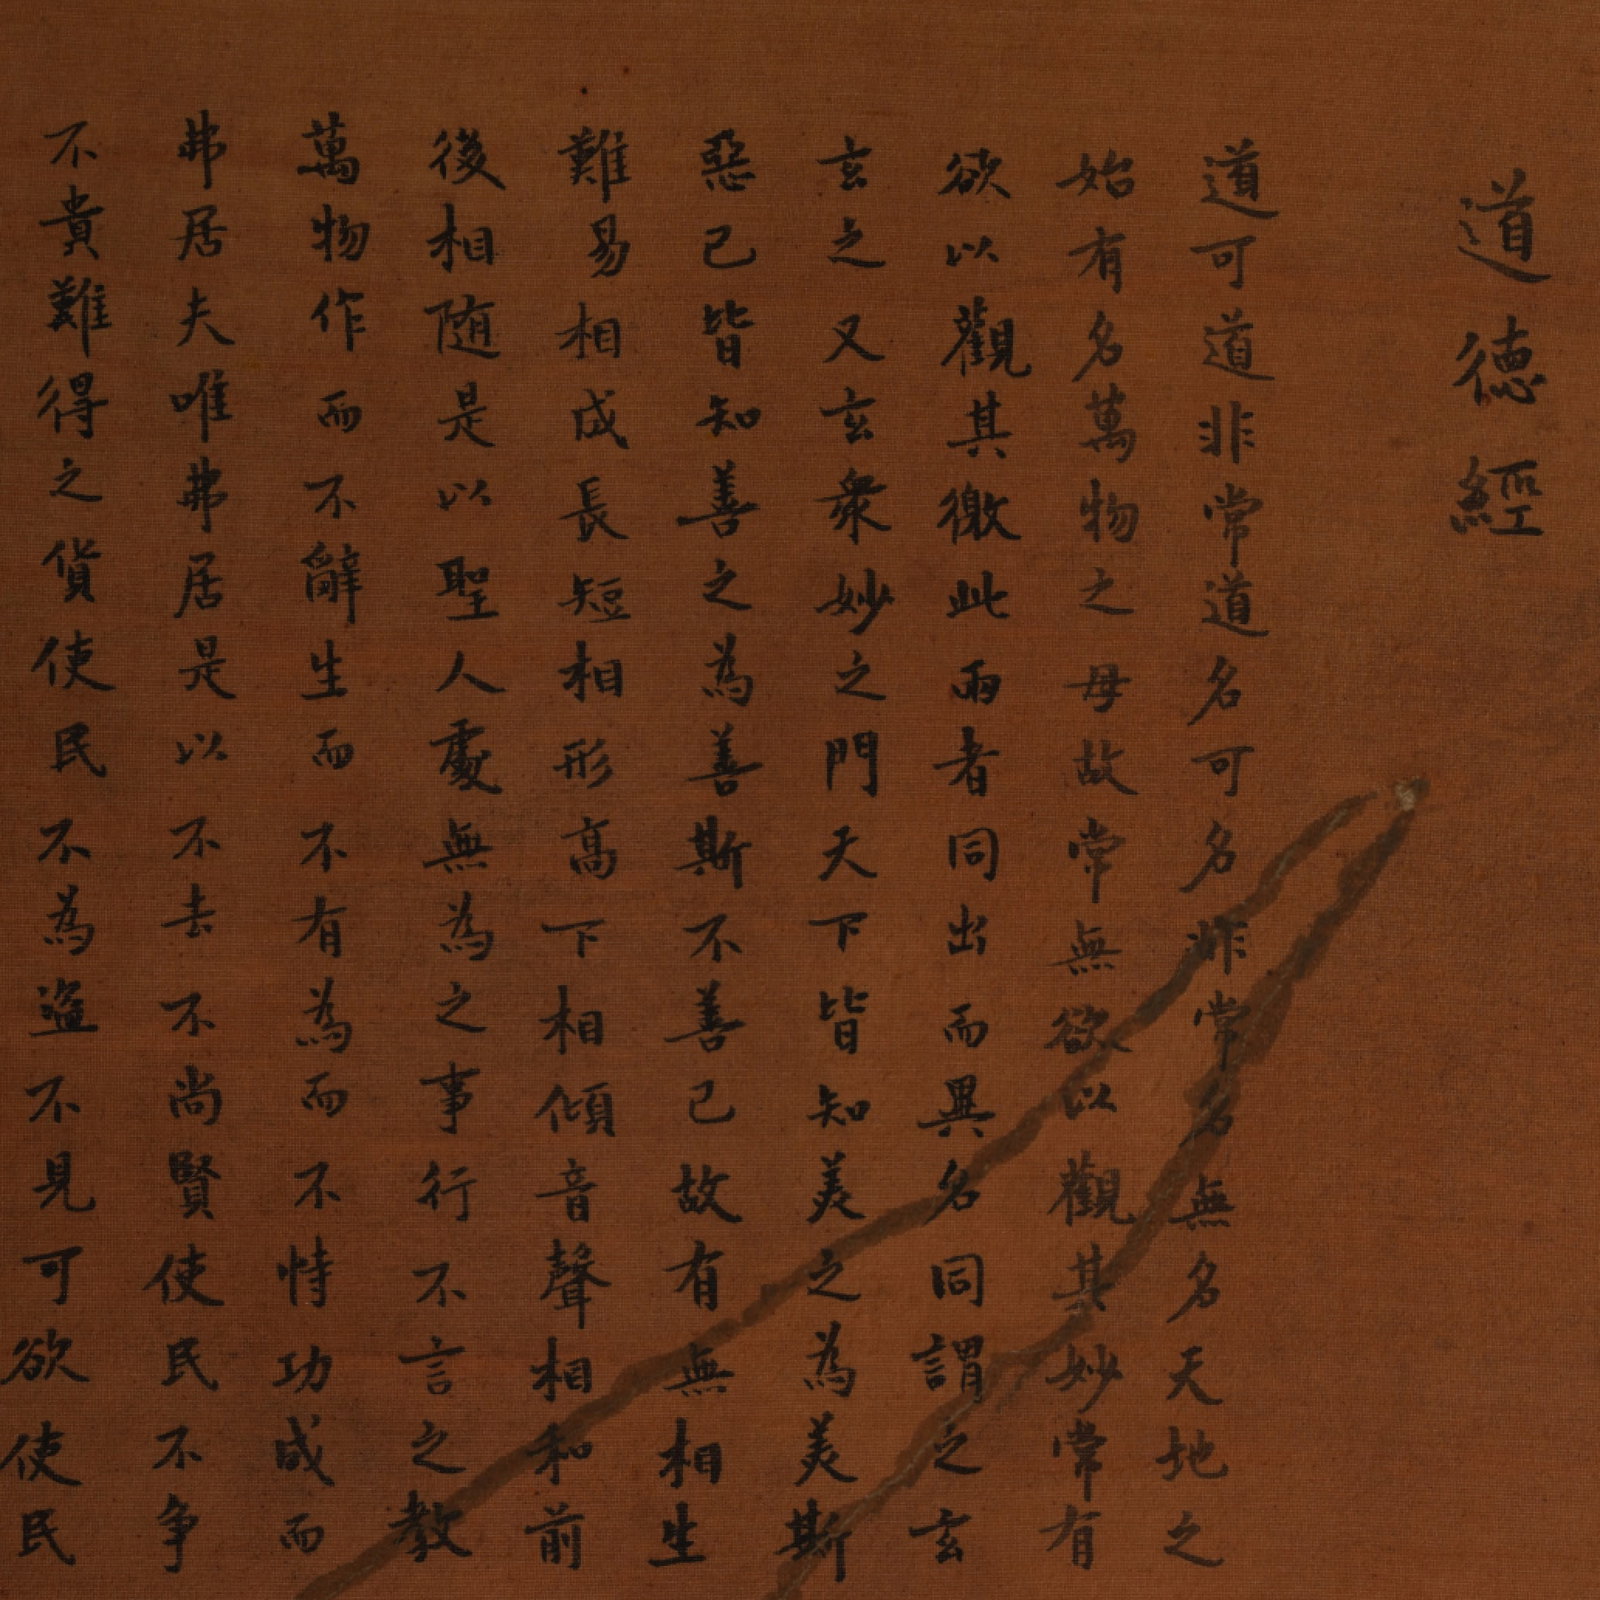 道德經
道可道非常道名可名非常名無名天地之
始有名萬物之母故常無欲以觀其妙常有
欲以觀其徼此兩者同出而異名同謂之玄
玄之又玄衆妙之門天下皆知美之為美斯
惡已皆知善之為善斯不善已故有無相生
難易相成長短相形高下相傾音聲相和前
後相随是以聖人處無為之事行不言之教
萬物作而不辭生而不有為而不恃功成而
弗居夫唯弗居是以不去不尚賢使民不争
不貴難得之貨使民不為盜不見可欲使民